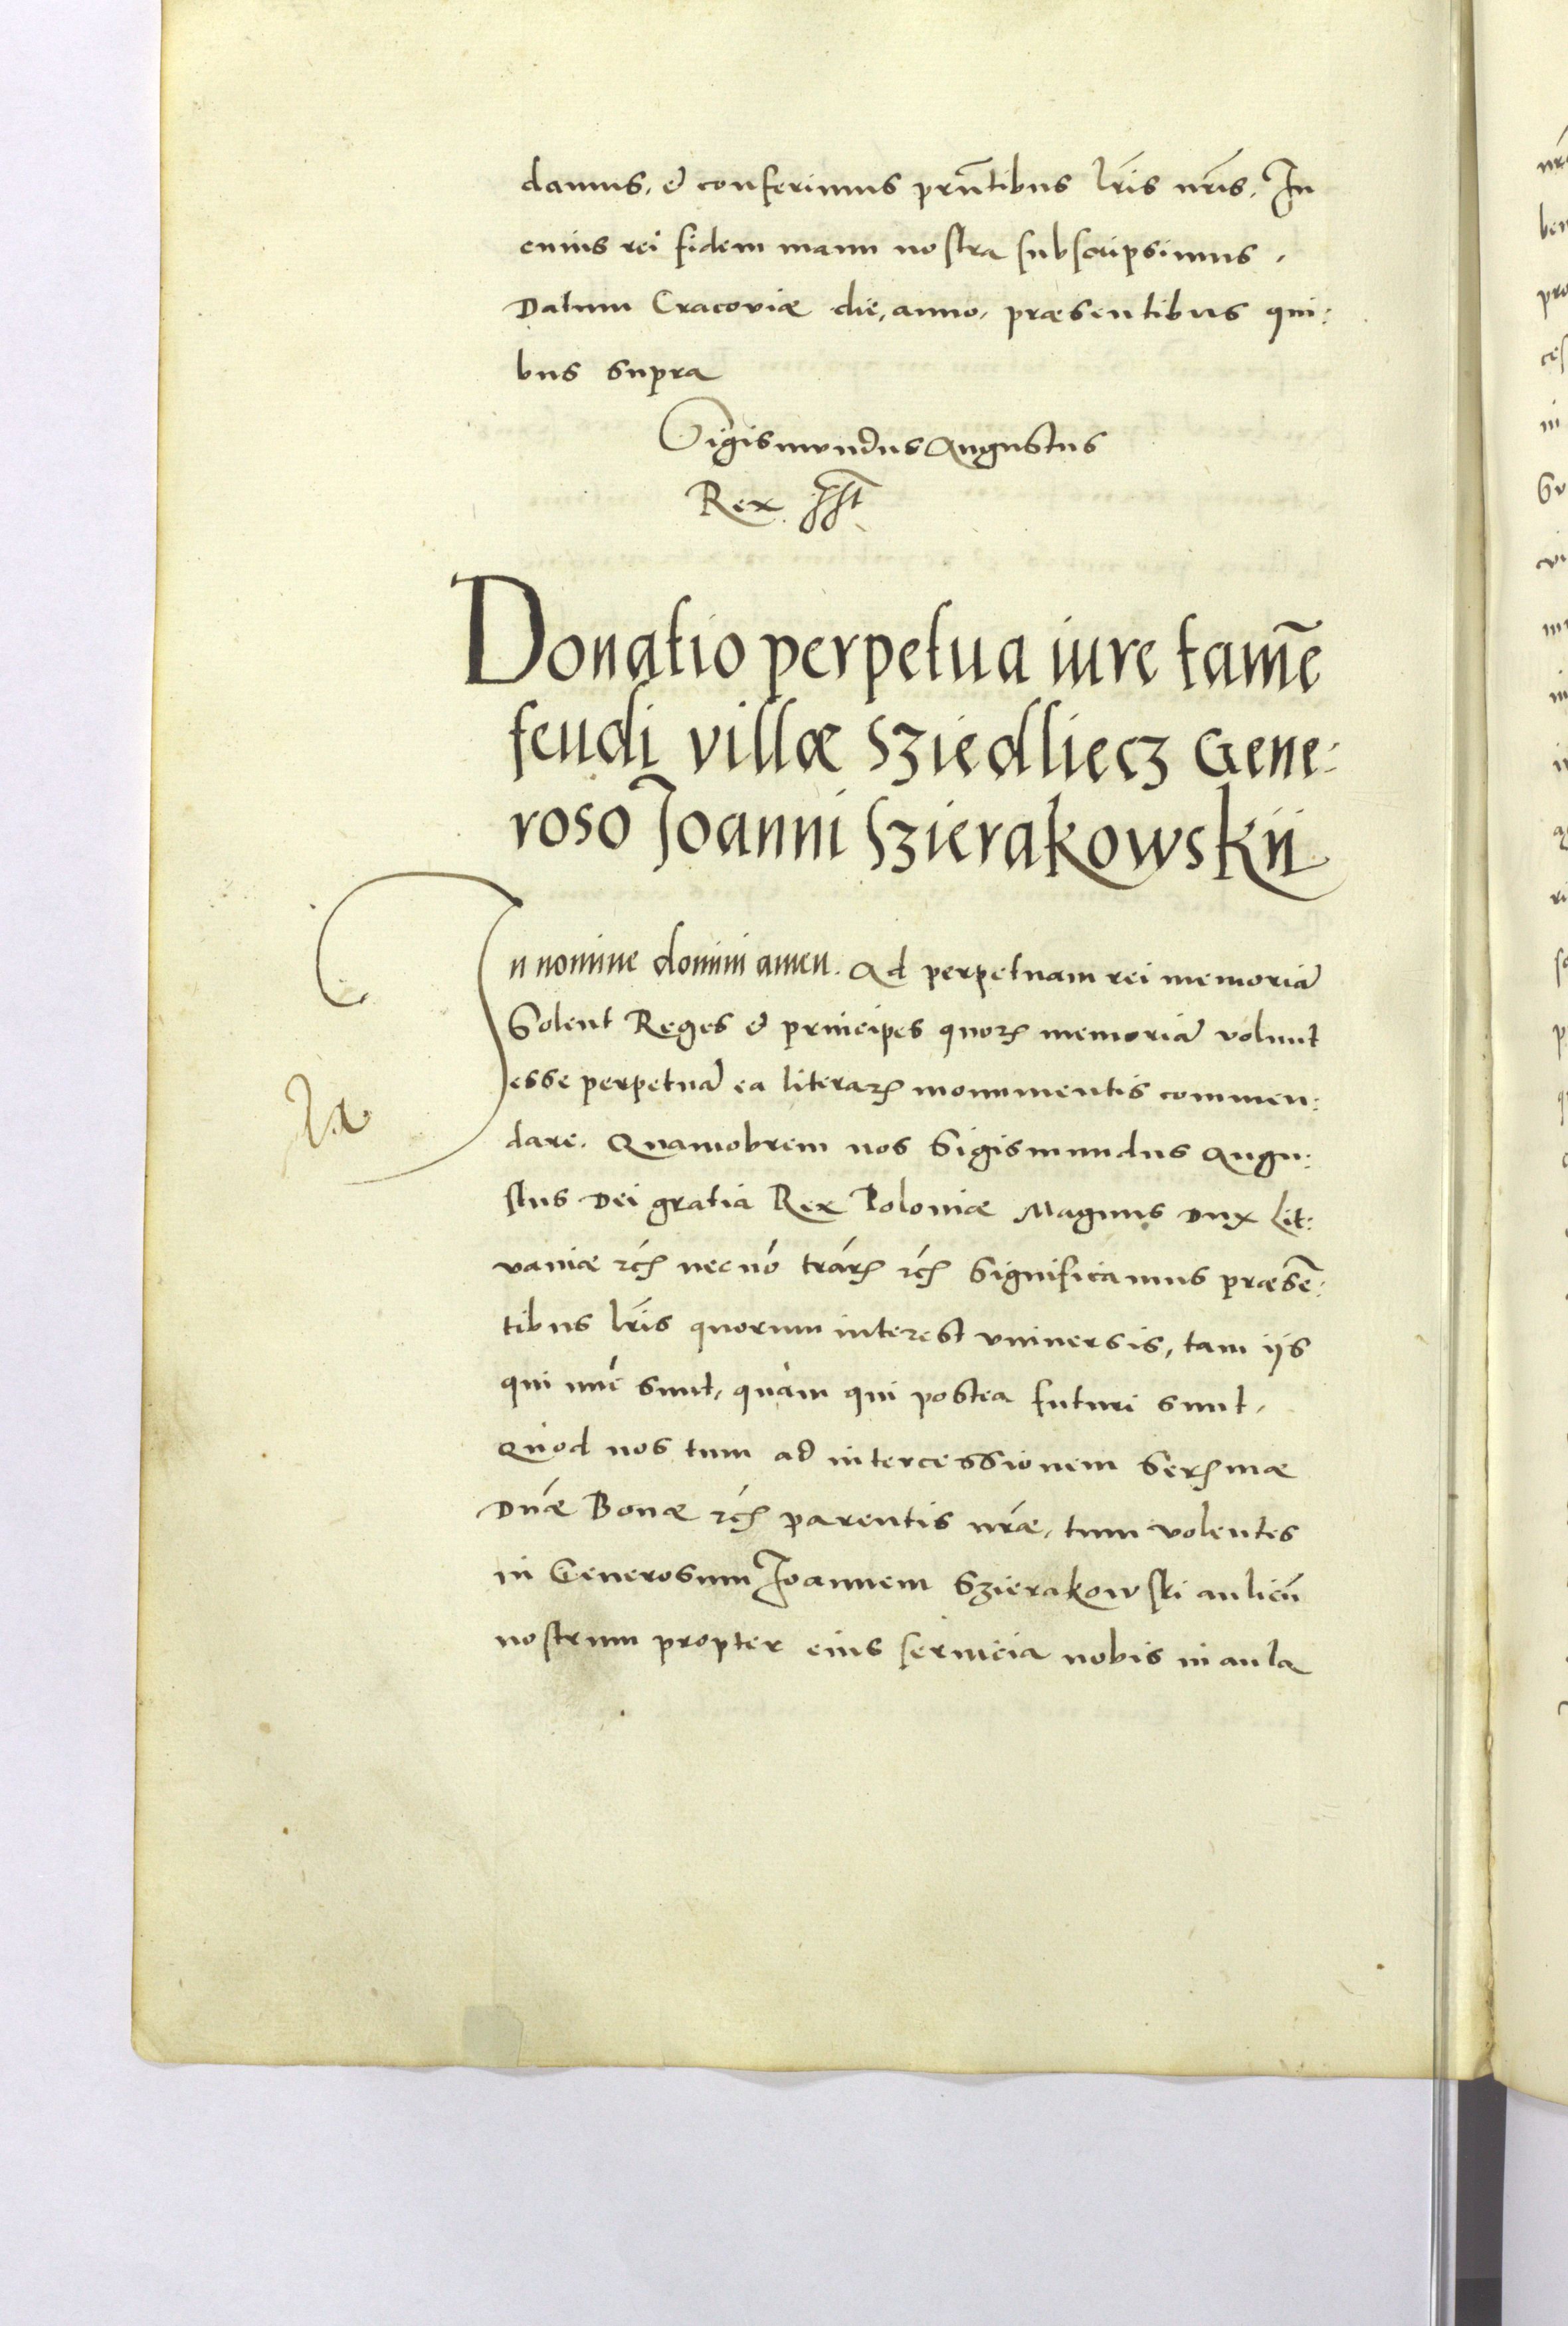 damus, et conferimus prn̄tibus lr̄is nr̄is. In
cuius rei fidem manu nostra subscripsimus.
Datum Cracoviæ die, anno, præsentibus qui:
bus supra
Sigismundus Augustus
Rex sst
Donatio perpetua iure tamē
feudi villæ Sziedliecz Gene:
roso Joanni Szierakowskii
In nomine domini amen. Ad perpetuam rei memoriā
Solent Reges et principes quorꝫ memoriā volunt
esse perpetuā ea literarꝫ monumentis commen:
dare. Quamobrem nos Sigismundus Augu:
stus Dei gratia Rex Poloniæ Magnus Dux Lit:
vaniæ ꝛcꝫ necnō trārꝫ ꝛcꝫ Significamus præsē:
tibus lr̄is quorum interest vniuersis, tam ijs
qui nūc sunt, quàm qui postea futuri sunt.
Quod nos tum ad intercessionem Serꝫmæ
Dn̄æ Bonæ ꝛcꝫ parentis nr̄æ, tum volentes
in Generosum Joannem Szierakowski aulicū
nostrum propter eius seruicia nobis in aula